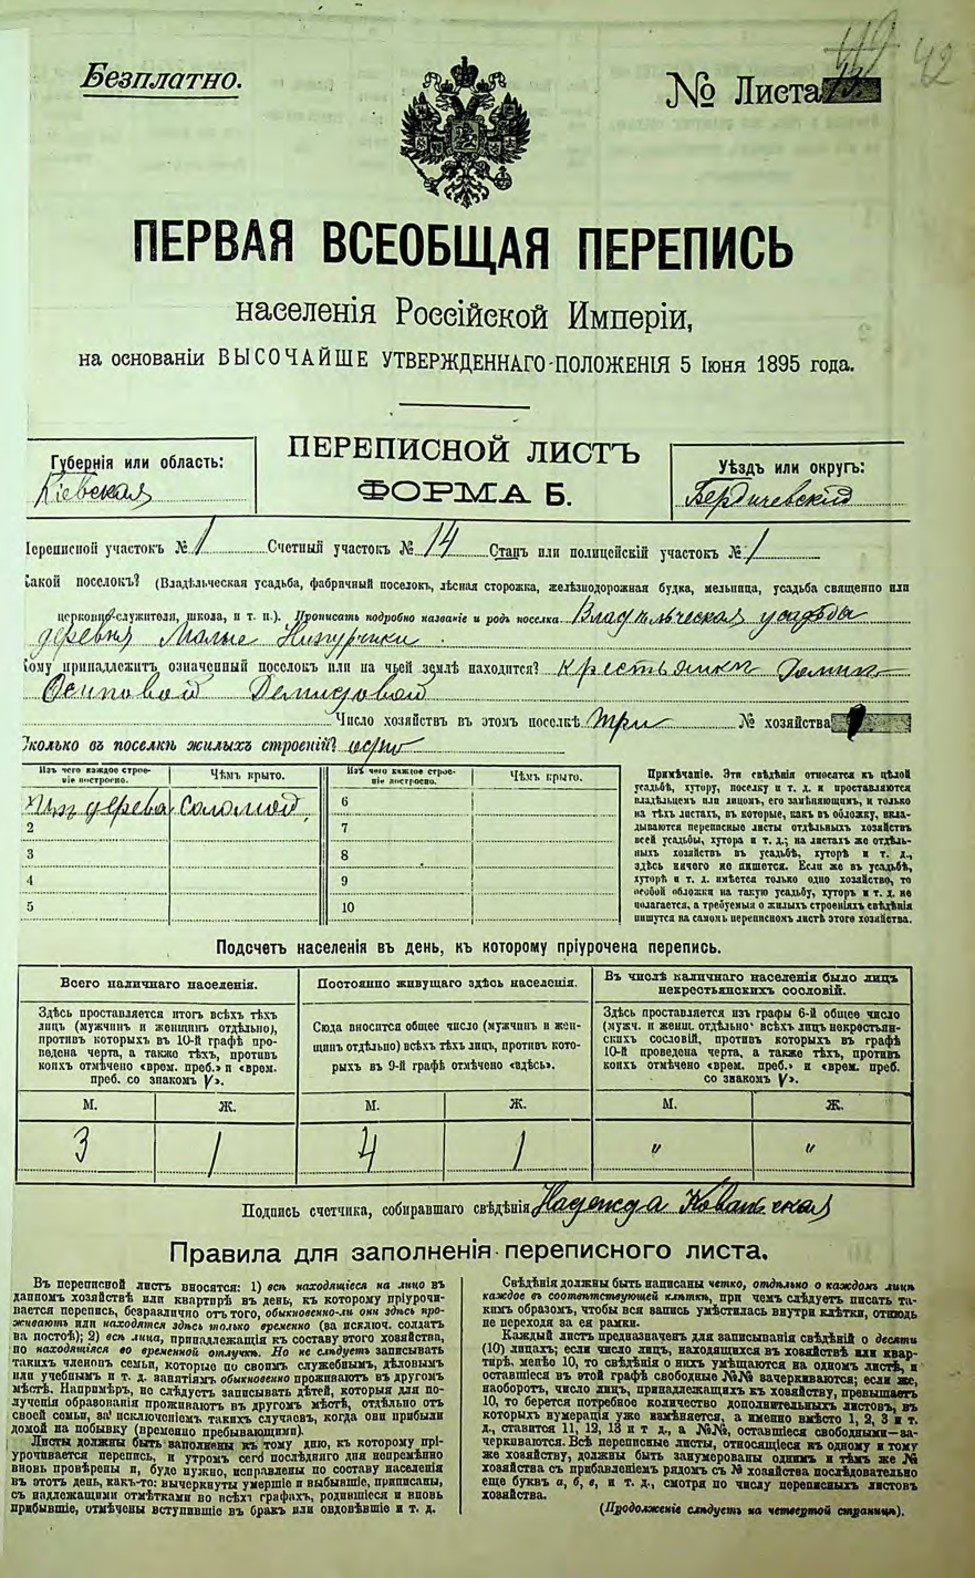 42
Безплатно.
№ Листа
ПЕРВАЯ ВСЕОБЩАЯ ПЕРЕПИСЬ
населенія Россійской Имперіи,
на основаніи ВЫСОЧАЙШЕ УТВЕРЖДЕННАГО ПОЛОЖЕНІЯ 5 Іюня 1895 года.
ПЕРЕПИСНОЙ ЛИСТЪ
ФОРМА Б.
Губернія или область:
Кіевская
Уѣздъ или округъ:
Бердичевскій
Переписной участокъ № 1 Счетный участокъ № 14 Станъ или полицейскій участокъ № 1
Какой поселокъ? (Владѣльческая усадьба, фабричный поселокъ, лѣсная сторожка, желѣзнодорожная будка, мельница, усадьба священно или
церковно-служителя, школа, и т. п.). Прописать подробно названіе и родъ поселка Владѣльческая усадьба
деревня Малые Низгурчики
Кому принадлежитъ означенный поселокъ или на чьей землѣ находится? крестьянки
Осиповой Демидовой
Число хозяйствъ въ этомъ поселкѣ три № хозяйства
Сколько въ поселкѣ жилыхъ строеній? одно
Изъ чего каждое строеніе построено. Чѣмъ крыто. Изъ чего каждое строеніе построено. Чѣмъ крыто.
изъ дерева соломой 6
2 7
3 8
4 9
5 10
Примѣчаніе. Эти свѣдѣнія относятся къ цѣлой
усадьбѣ, хутору, поселку и т. д. и проставляются
владѣльцемъ или лицомъ, его замѣняющимъ, и только
на тѣхъ листахъ, въ которые, какъ въ обложку, вкла-
дываются переписные листы отдѣльныхъ хозяйствъ
всей усадьбы, хутора и т. д.; на листахъ же отдѣль-
ныхъ хозяйствъ въ усадьбѣ, хуторѣ и т. д.,
здѣсь ничего не пишется. Если же въ усадьбѣ,
хуторѣ и т. д. имѣется только одно хозяйство, то
особой обложки на такую усадьбу, хуторъ и т. д. не
полагается, а требуемыя о жилыхъ строеніяхъ свѣдѣнія
пишутся на самомъ переписномъ листѣ этого хозяйства.
Подсчетъ населенія въ день, къ которому пріурочена перепись.
Всего наличнаго населенія.
Здѣсь проставляется итогъ всѣхъ тѣхъ
лицъ (мужчинъ и женщинъ отдѣльно),
противъ которыхъ въ 10-й графѣ про-
ведена черта, а также тѣхъ, противъ
коихъ отмѣчено «врем. преб.» и «врем.
преб. со знакомъ V».
Постоянно живущаго здѣсь населенія.
Сюда вносится общее число (мужчинъ и жен-
щинъ отдѣльно) всѣхъ тѣхъ лицъ, противъ кото-
рыхъ въ 9-й графѣ отмѣчено «здѣсь».
Въ числѣ наличнаго населенія было лицъ
некрестьянскихъ сословій.
Здѣсь проставляется изъ графы 6-й общее число
(мужч. и женщ. отдѣльно) всѣхъ лицъ некрестьян-
скихъ сословій, противъ которыхъ въ графѣ
10-й проведена черта, а также тѣхъ, противъ
коихъ отмѣчено «врем. преб.» и «врем. преб.
со знакомъ V».
М. Ж. М. Ж. М. Ж.
3 1 4 1 " "
Подпись счетчика, собиравшаго свѣдѣнія Надежда
Правила для заполненія переписного листа.
Въ переписной листъ вносятся: 1) всѣ находящіеся на лицо въ
данномъ хозяйствѣ или квартирѣ въ день, къ которому пріурочи-
вается перепись, безразлично отъ того, обыкновенно-ли они здѣсь про-
живаютъ или находятся здѣсь только временно (за исключ. солдатъ
на постоѣ); 2) всѣ лица, принадлежащія къ составу этого хозяйства,
но находящіяся во временной отлучкѣ. Но не слѣдуетъ записывать
такихъ членовъ семьи, которые по своимъ служебнымъ, дѣловымъ
или учебнымъ и т. д. занятіямъ обыкновенно проживаютъ въ другомъ
мѣстѣ. Напримѣръ, не слѣдуетъ записывать дѣтей, которыя для по-
лученія образованія проживаютъ въ другомъ мѣстѣ, отдѣльно отъ
своей семьи, за исключеніемъ такихъ случаевъ, когда они прибыли
домой на побывку (временно пребывающими).
Листы должны быть заполнены къ тому дню, къ которому прі-
урочивается перепись, и утромъ сего послѣдняго дня непремѣнно
вновь провѣрены и, буде нужно, исправлены по составу населенія
въ этотъ день, какъ-то: вычеркнуты умершіе и выбывшіе, приписаны,
съ надлежащими отмѣтками во всѣхъ графахъ, родившіеся и вновь
прибывшіе, отмѣчены вступившіе въ бракъ или овдовѣвшіе и т. д.
Свѣдѣнія должны быть написаны четко, отдѣльно о каждомъ лицѣ
каждое въ соотвѣтствующей клѣткѣ, при чемъ слѣдуетъ писать та-
кимъ образомъ, чтобы вся запись умѣстилась внутри клѣтки, отнюдь
не переходя за ея рамки.
Каждый листъ предназначенъ для записыванія свѣдѣній о десяти
(10) лицахъ; если число лицъ, находящихся въ хозяйствѣ или квар-
тирѣ, менѣе 10, то свѣдѣнія о нихъ умѣщаются на одномъ листѣ, и
оставшіеся въ этой графѣ свободные №№ зачеркиваются; если же,
наоборотъ, число лицъ, принадлежащихъ къ хозяйству, превышаетъ
10, то берется потребное количество дополнительныхъ листовъ, въ
которыхъ нумерація уже измѣняется, а именно вмѣсто 1, 2, 3 и т.
д., ставится 11, 12, 13 и т. д., а №№, оставшіеся свободными—за-
черкиваются. Всѣ переписные листы, относящіеся къ одному и тому
же хозяйству, должны быть занумерованы однимъ и тѣмъ же №
хозяйства съ прибавленіемъ рядомъ съ № хозяйства послѣдовательно
еще буквъ а, б, в, и т. д., смотря по числу переписныхъ листовъ
хозяйства.
(Продолженіе слѣдуетъ на четвертой страницѣ).